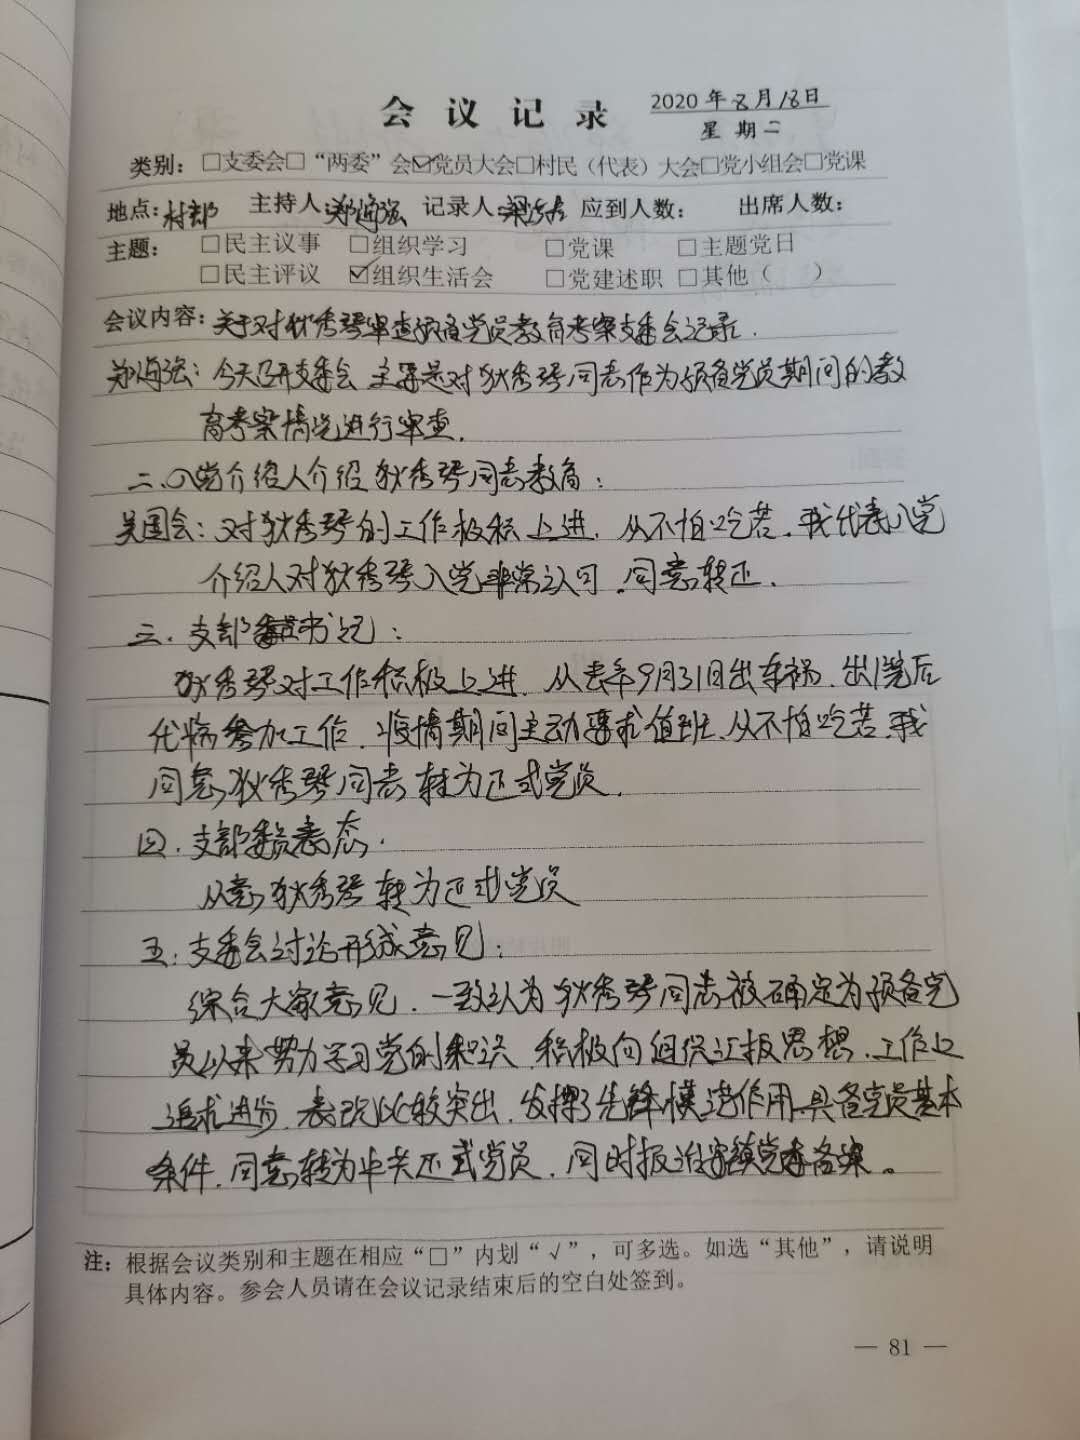 会议记录 2020年8月18日
星期二
类别：□支委会□“两委”会☑党员大会□村民（代表）大会□党小组会□党课
地点：村部 主持人 郑海强 记录人 应到人数： 出席人数：
主题： □民主议事 □组织学习 □党课 □主题党日
□民主评议 ☑组织生活会 □党建述职 □其他（ ）
会议内容：关于对狄秀琴审查预备党员教育考察支委会记录.
郑海强：今天召开支委会 主要是对狄秀琴同志作为预备党员期间的教
育考察情况进行审查.
二.入党介绍人介绍狄秀琴同志教育：
吴国会：对狄秀琴的工作极积上进.从不怕吃苦.我代表入党
介绍人对狄秀琴入党非常认可.同意转正.
三.支部书记：
狄秀琴对工作积极上进.从去年9月31日出车祸.出院后
代病参加工作.疫情期间主动要求值班.从不怕吃苦.我
同意狄秀琴同志转为正式党员.
四.支部委员表态.
从意狄秀琴转为正式党员
五.支委会讨论形成意见：
综合大家意见.一致认为狄秀琴同志被确定为预备党
员以来努力学习党的知识.积极向组织汇报思想.工作上
追求进步.表现比较突出.发挥了先锋模范作用.具备党员基本
条件.同意转为中共正式党员.同时报镇党委备案。
注：根据会议类别和主题在相应“□”内划“√”，可多选。如选“其他”，请说明
具体内容。参会人员请在会议记录结束后的空白处签到。
— 81 —